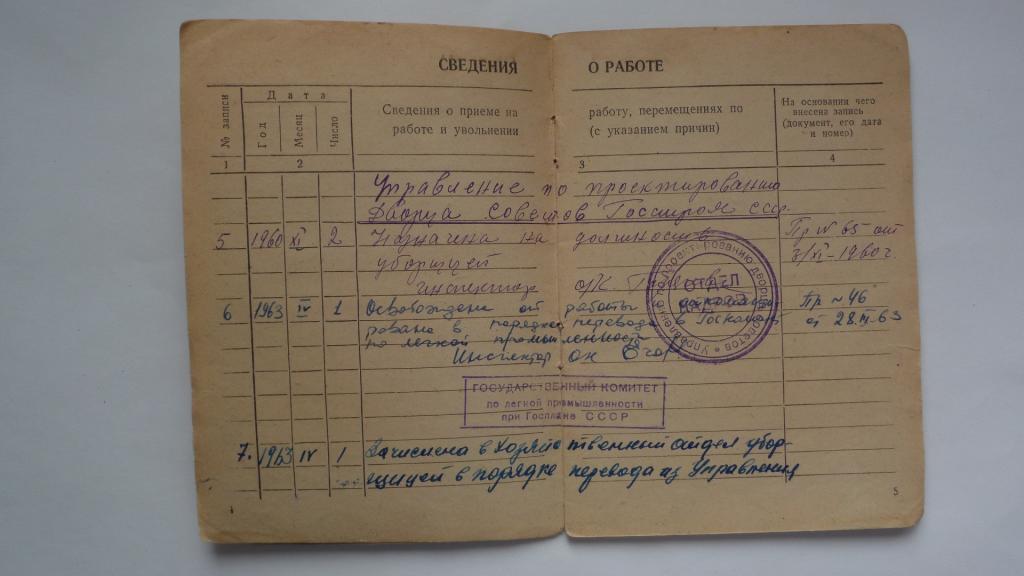 СВЕДЕНИЯ О РАБОТЕ
№ записи
Дата
Год
Месяц
Число
Сведения о приеме на работу, перемещениях по
работе и увольнении (с указанием причин)
На основании чего
внесена запись
(документ, его дата
и номер)
1 2 3 4
Управление по проектированию
Дворца Советов Госстроя СССР
5 1960 XI 2 Назначена на должность
уборщицей
Пр № 65 от
3/XI-1960 г.
инспектор о/к
6 1963 IV 1 Освобождена от работы
в порядке перевода в
по легкой промышленности
Инспектор ок
Пр ~ 46
от 28.III.63
Управление по проектированию дворца советов
ОТДЕЛ
КАДРОВ
ГОСУДАРСТВЕННЫЙ КОМИТЕТ
по легкой промышленности
при Госплане СССР
7. 1963 IV 1 Зачислена в хозяйственный отдел убор-
щицей в порядке перевода из Управления
4 5